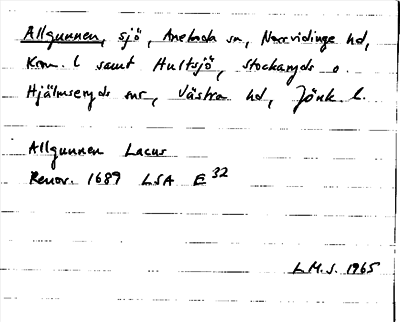 Allgunnen, sjö, Aneboda sn, Norrvidinge hd,
Kron. l samt Hultsjö, Stockaryds o.
Hjälmseryds snr, Västra hd, Jönk. l.
Allgunnen Lacus
Renov. 1689 LSA E 32
L.M.J. 1965